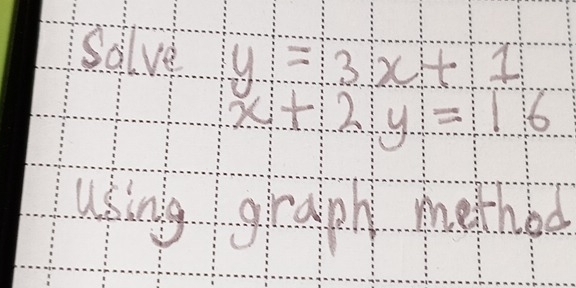 Solve y = 3x + 1
x + 2y = 16
using graph method